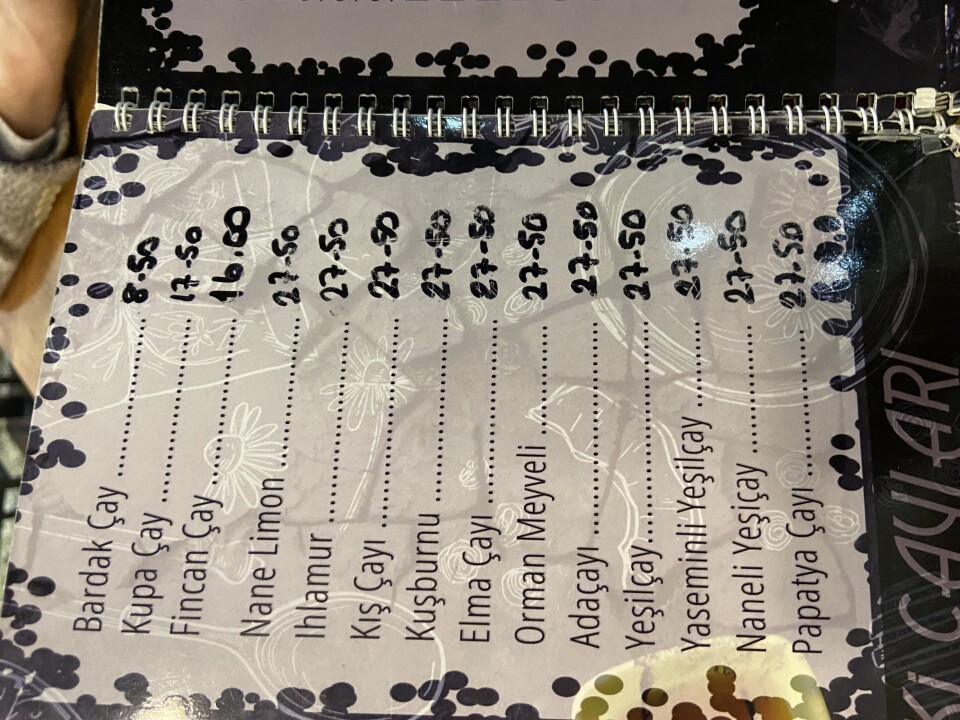 Bardak Çay ........ 8.50
Kupa Çay ........ 17.50
Fincan Çay ........ 16.00
Nane Limon ........ 27.50
Ihlamur ........ 27.50
Kış Çayı ........ 27.50
Kuşburnu ........ 27.50
Elma Çayı ........ 27.50
Orman Meyveli ........ 27.50
Adaçayı ........ 27.50
Yeşilçay ........ 27.50
Yaseminli Yeşilçay ........ 27.50
Naneli Yeşiçay ........ 27.50
Papatya Çayı ........ 27.50
ÇAYLARI